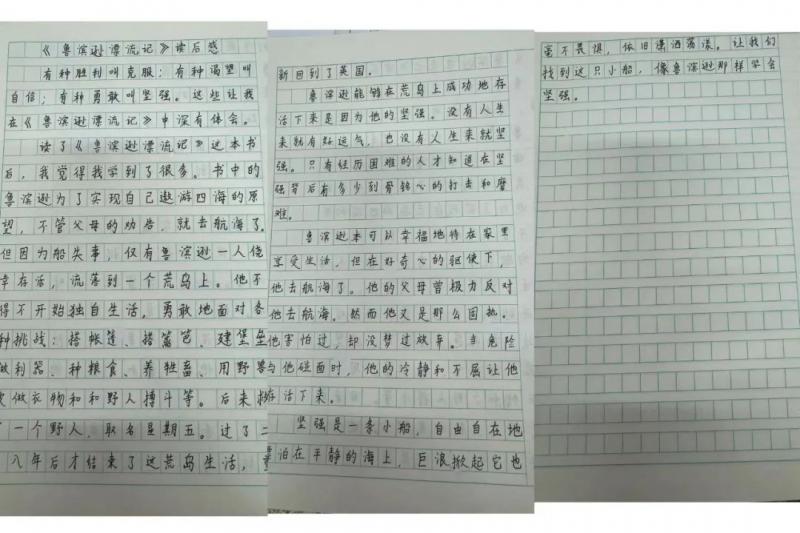 《鲁滨逊漂流记》读后感
有种胜利叫克服；有种渴望叫
自信；有种勇敢叫坚强。这些让我
在《鲁滨逊漂流记》中深有体会。
读了《鲁滨逊漂流记》这本书
后，我觉得我学到了很多。书中的
鲁滨逊为了实现自己遨游四海的原
望，不管父母的劝告，就去航海了。
但因为船失事，仅有鲁滨逊一人侥
幸存活，流落到一个荒岛上。他不
得不开始独自生活，勇敢地面对各
种挑战：搭帐篷、搭篱笆、建堡垒
做利器、种粮食、养牲畜、用野兽
皮做衣物和和野人搏斗等。后来救
了一个野人，取名星期五。过了二
八年后才结束了这荒岛生活，重
新回到了英国。
鲁滨逊能够在荒岛上成功地存
活下来是因为他的坚强。没有人生
来就有好运气，也没有人生来就坚
强。只有经历困难的人才知道在坚
强背后有多少刻骨铭心的打击和磨
难。
鲁滨逊本可以幸福地待在家里
享受生活，但在好奇心的驱使下，
他去航海了。他的父母曾极力反对
他去航海。然而他又是那么固执。
他害怕过，却没梦过放弃。当危险
与他碰面时，他的冷静和不屈让他
存活下来。
坚强是一条小船，自由自在地
泊在平静的海上，巨浪掀起它也
毫不畏惧，依旧潇洒荡漾。让我们
找到这只小船，像鲁滨逊那样学会
坚强。